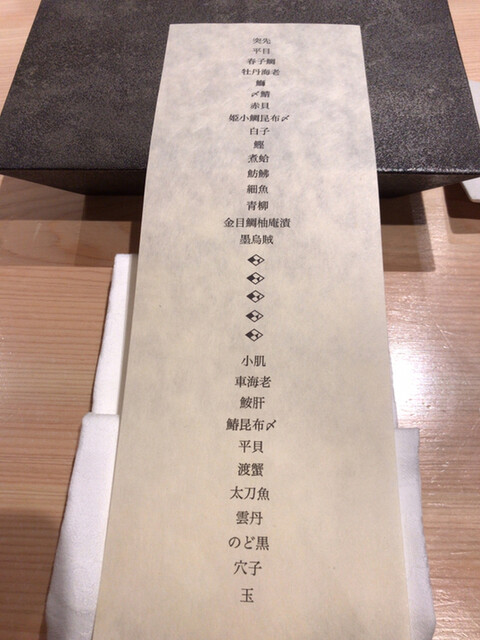 突先
平目
春子鯛
牡丹海老
鰤
〆鯖
赤貝
姫小鯛昆布〆
白子
鰹
煮蛤
魴鮄
細魚
青柳
金目鯛柚庵漬
墨烏賊
小肌
車海老
鮟肝
鰆昆布〆
平貝
渡蟹
太刀魚
雲丹
のど黒
穴子
玉